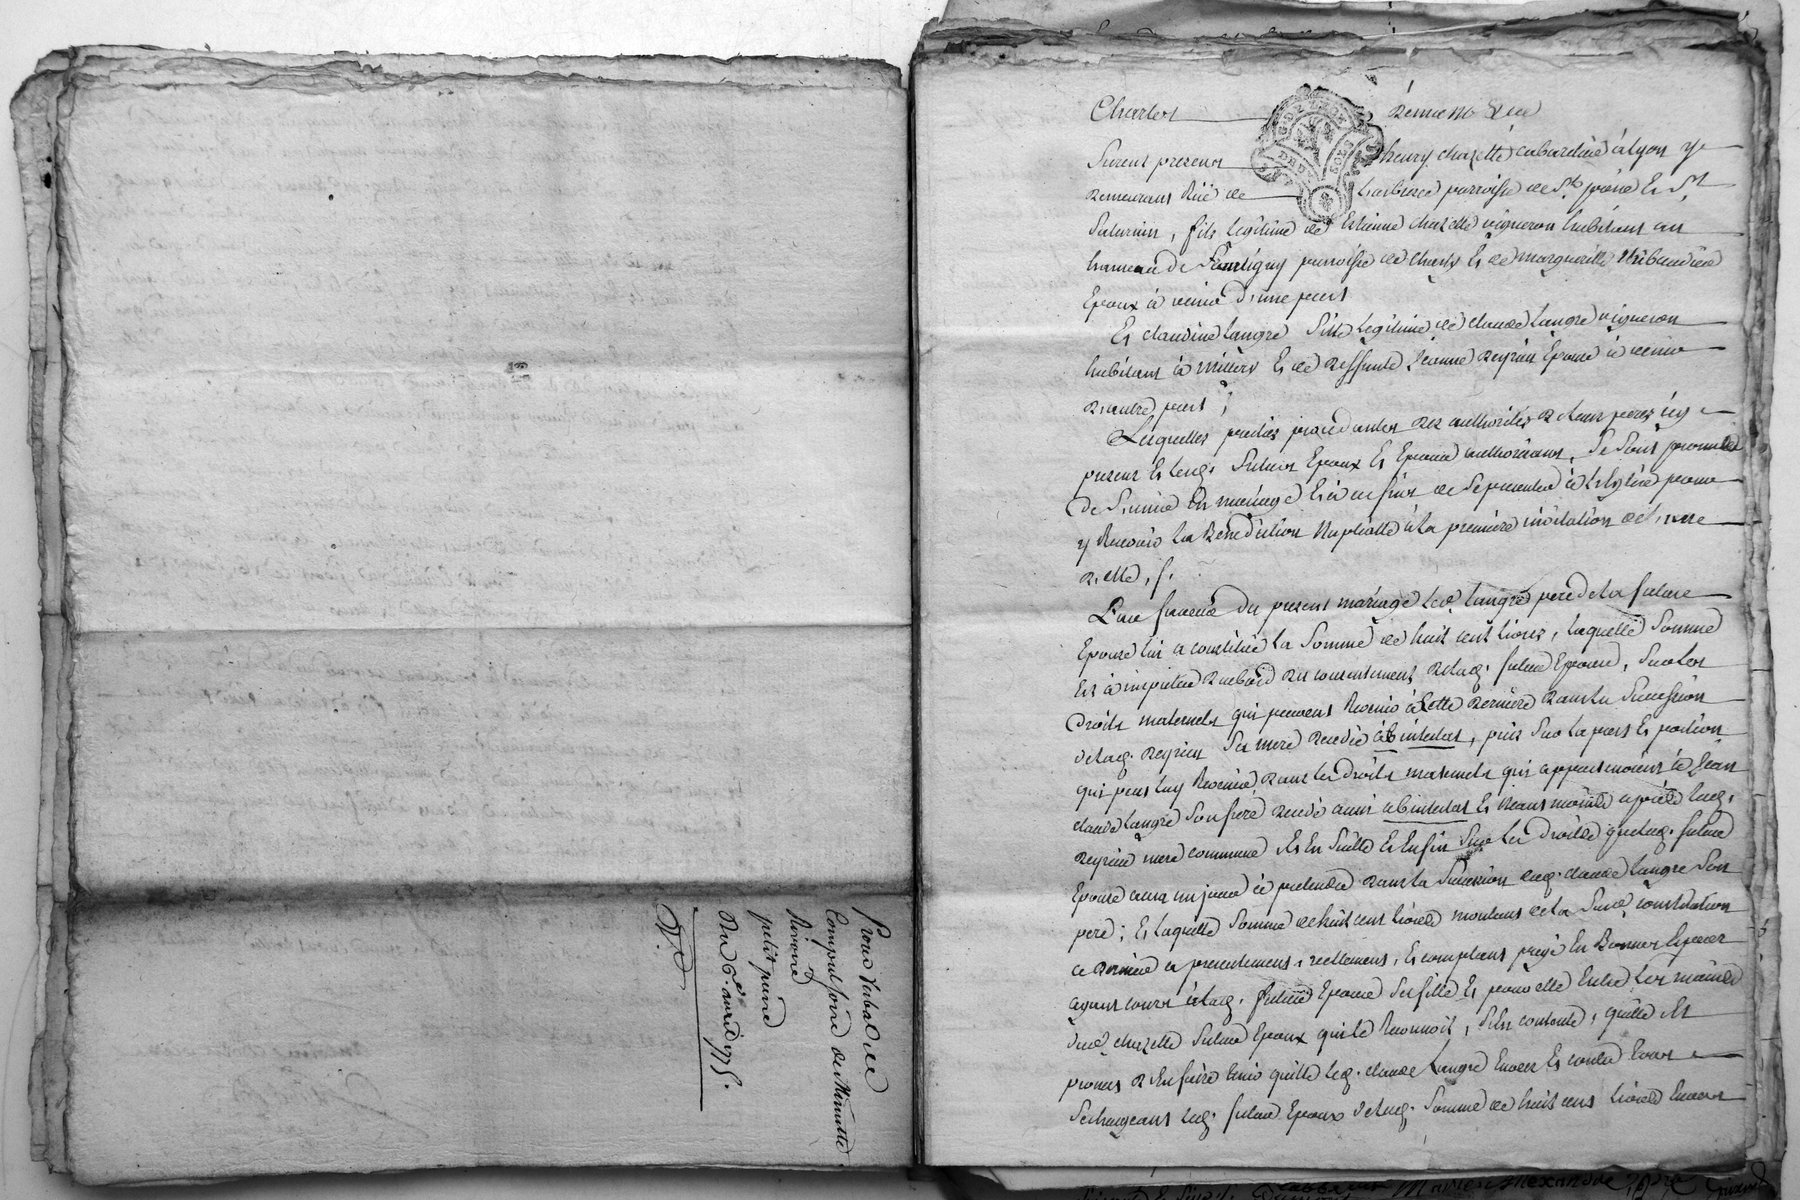 Proces Verbal de
Compulsoire de Minutte
petit
Du 6e. avril 1775.
Charles
GEN DE LYON
DEUX SOLS
furent presents henry chazette cabaretier à Lyon y
demeurant Rüe de paroisse de St. pierre Et St.
Saturnin, fils Legitime de Estienne chazette vigneron habitant au
hameau de paroisse de charly Et de marguerite
Epoux à venir d'une part
Et claudine Langre fille Legitime de claude Langre vigneron
habitant à millery Et de deffunte Jeanne Reyrieu Epouse à venir
d'autre part ;
Lesquelles parties procedantes des authorités de leurs peres icy
presents Et lesd. futurs Epoux Et Epouse authorisants, se sont promis
de s'unir En mariage Et à ces fins de se presenter à L'Eglise pour
y Recevoir La Benediction Nuptialle à La premiere invitation de l'une
d'elle,
En faveur du present mariage led. Langre pere de La future
Epouse lui a constitué La Somme de huit cent livres, Laquelle Somme
Est à imputer d'abord du consentement de lad. future Epouse, Sur les
droits maternels qui peuvent Revenir à Cette derniere dans la Succession
de lad. Reyrieu Sa mere decedée abintestat, puis Sur La part Et portion
qui peut luy Revenir dans les droits maternels qui appartenoient à Jean
claude Langre Son frere decedé aussi abintestat Et sans après lad.
Reyrieu mere commune, Et En Suitte Et Enfin Sur les droits que lad. future
Epouse aura un jour à pretendre dans la Succession dud. claude Langre Son
pere ; Et Laquelle Somme de huit cent livres montant de La Susd. constitution
ce dernier a presentement, reellement, Et comptant payé En Bonnes Especes
ayant cours à lad. future Epouse Sa fille Et pour elle Entre Les mains
dud. chazette futur Epoux qui le Reconnoit, S'En contente, quitte Et
promet d'En faire tenir quitte led. claude Langre Envers Et contre tous
Se chargeant led. futur Epoux de lad. Somme de huit cent livres Envers